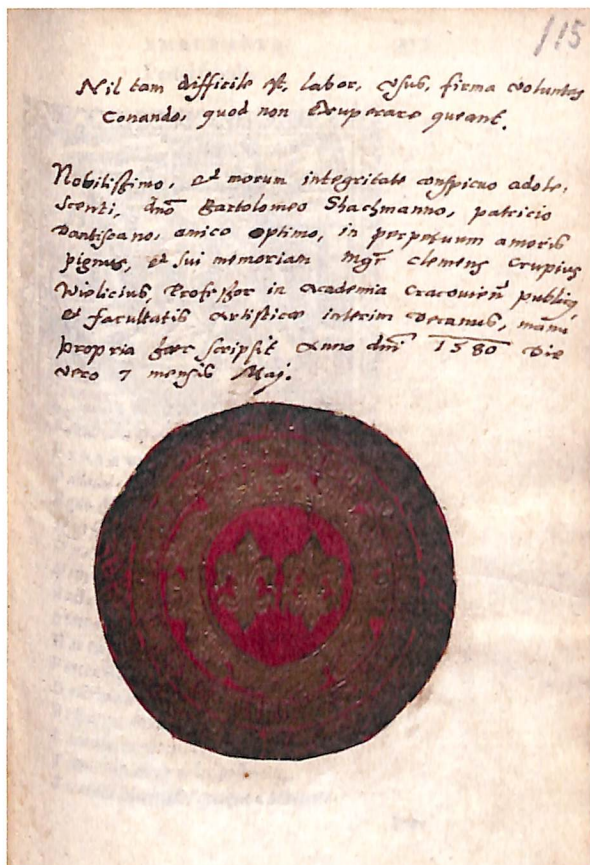 115
Nil tam difficile est, labor, usus, firma voluntas
Conando, quod non exuperare queant.
Nobilissimo, et morum integritate conspicuo adole,
scenti, dnō Bartolomeo Shachmanno, patricio
Dantiscano, amico optimo, in perpetuum amoris
pignus, et sui memoriam Mgr̄ Clemens Crupius
Wielicius, Professor in Academia Cracovien̄ publicꝰ
et facultatis Artisticæ interim Decanus, manu
propria hæc scripsit Anno dnī 1580 Die
vero 7 mensis Maj.